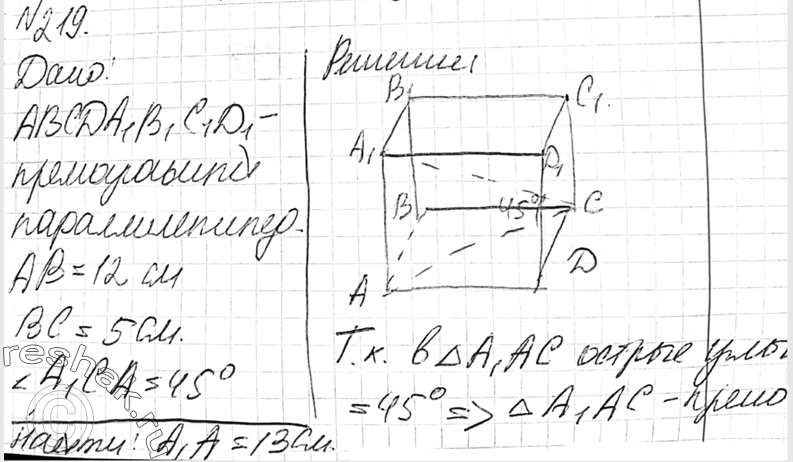 №219.
Дано:
ABCDA₁B₁C₁D₁ –
прямоугольный
параллелепипед.
AB = 12 см
BC = 5 см.
∠A₁CA = 45°
Найти: A₁A = 13 см.
Решение
B₁
C₁.
A₁
D₁
B
45°
C
A
D
Т.к. в △A₁AC острые углы
= 45° => △A₁AC – прямо
reshak.ru